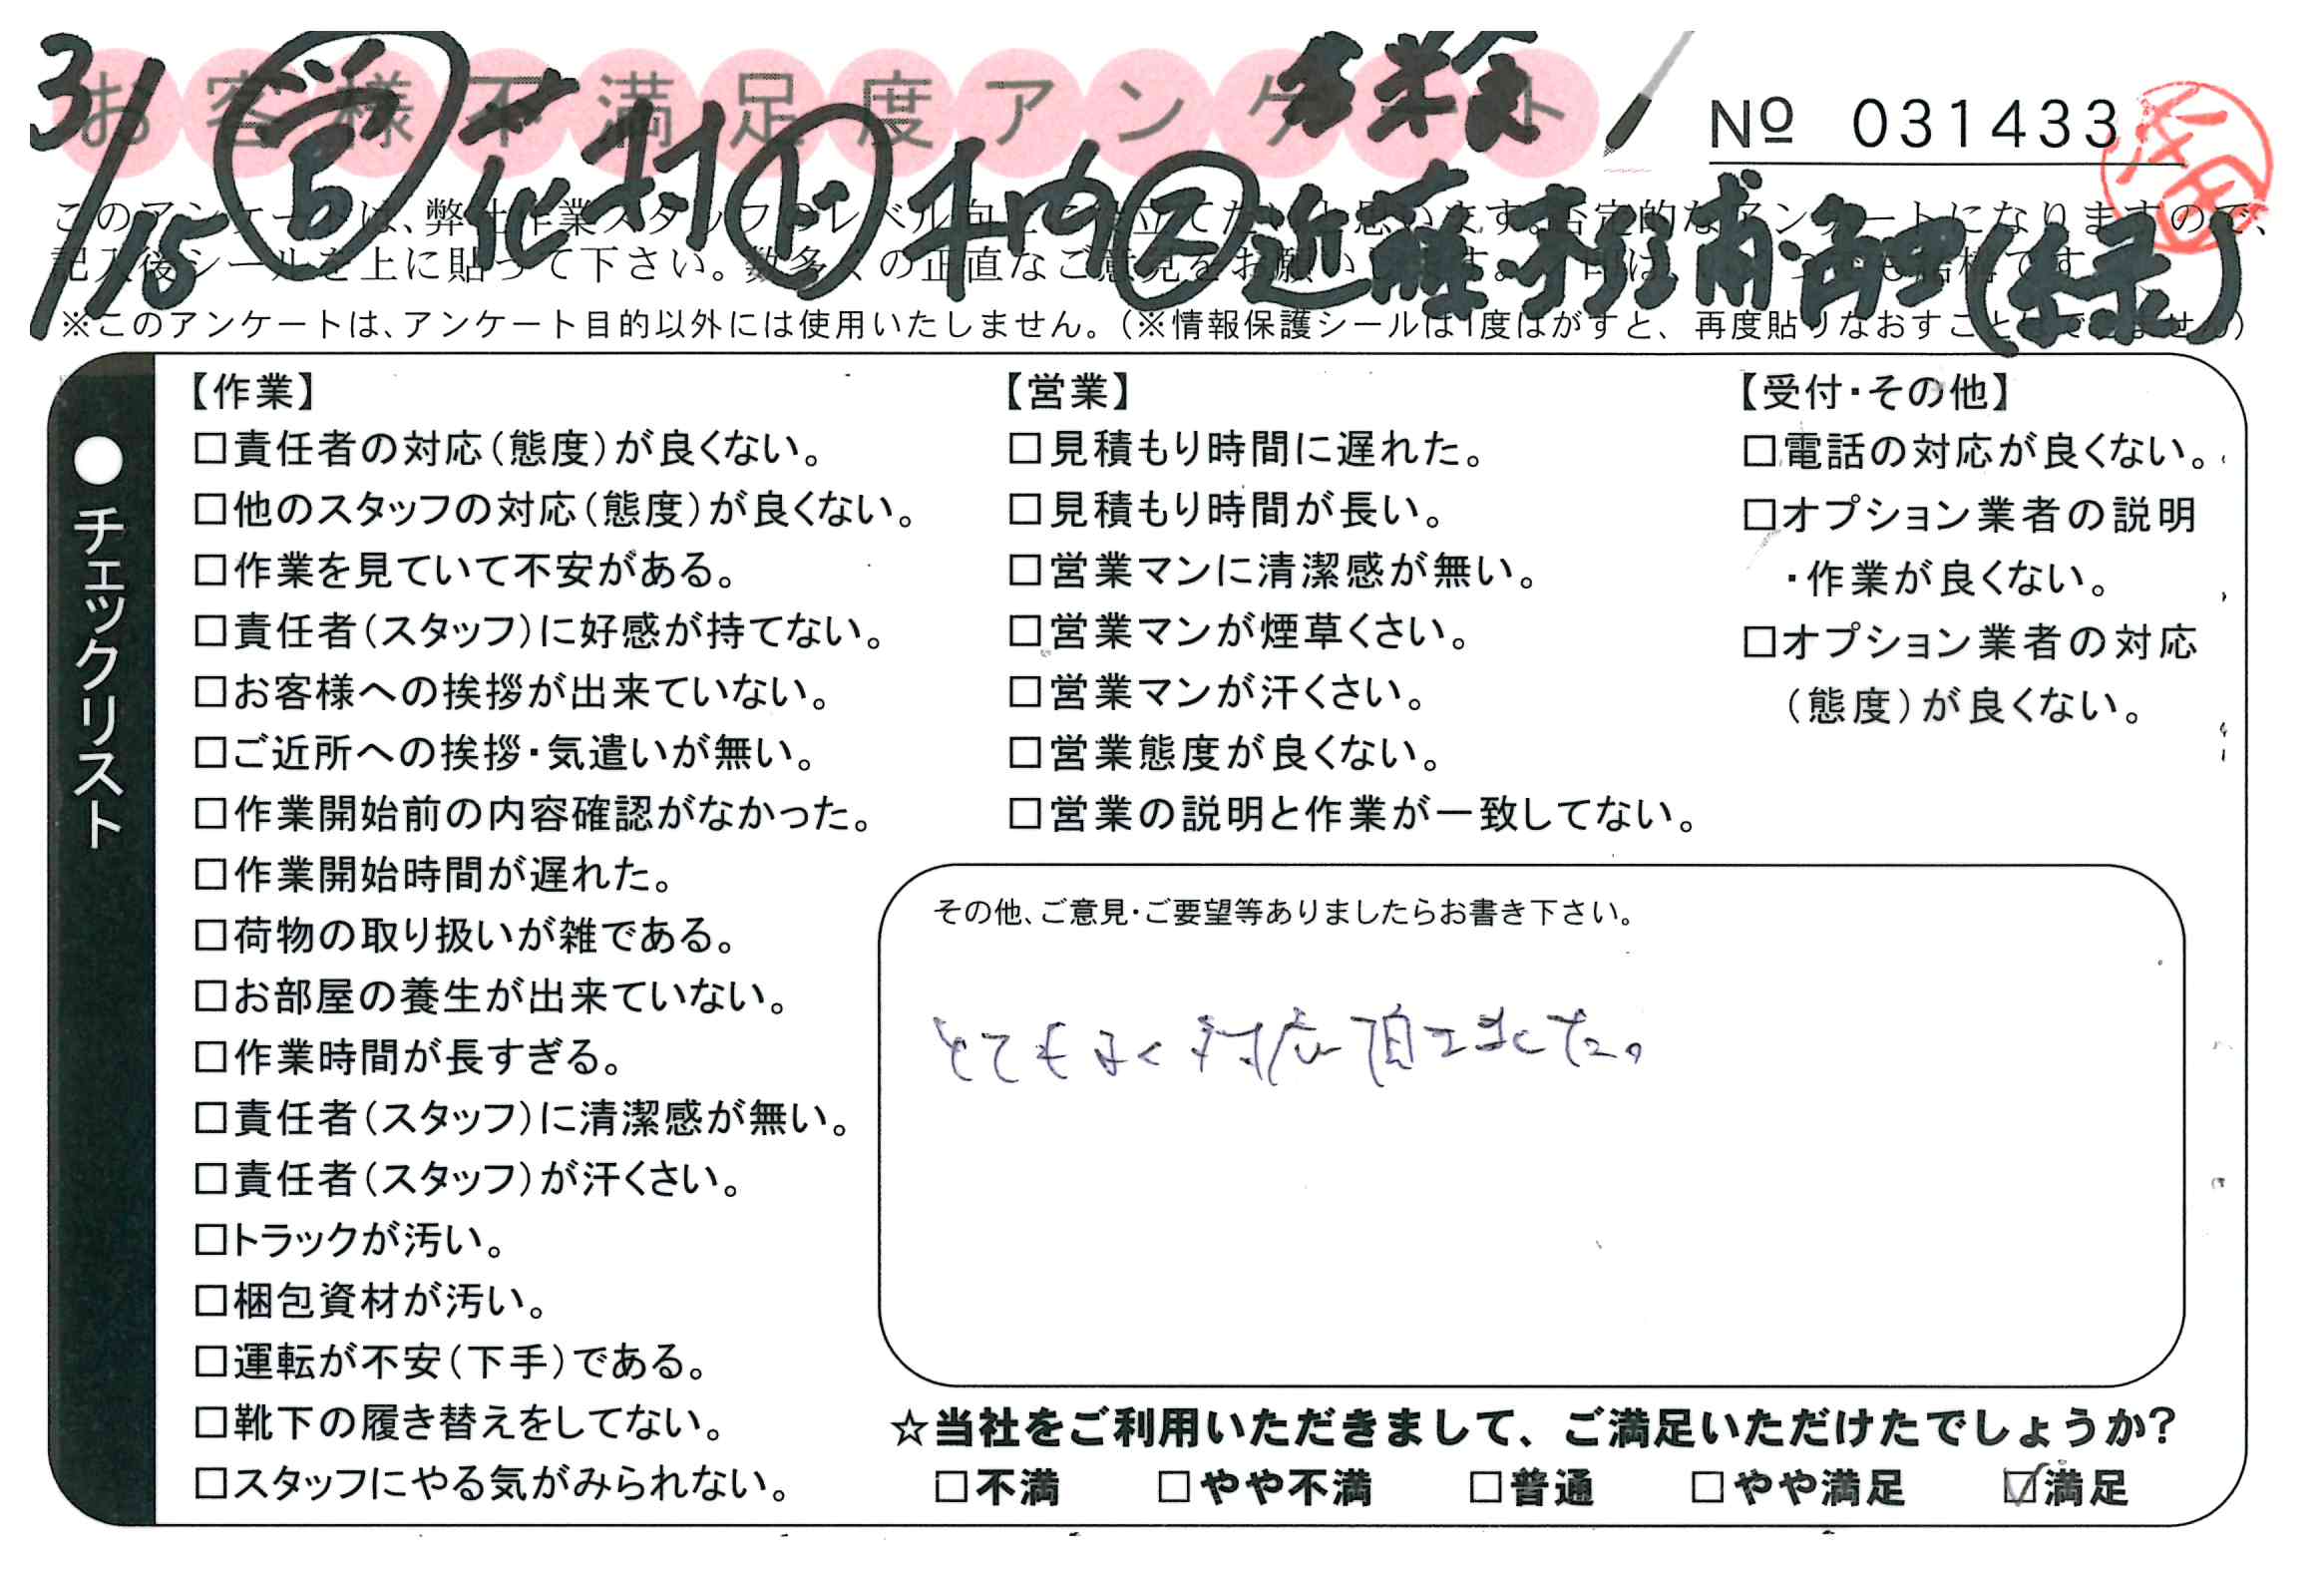 お客様不満足度アンケート
No 031433
3/15 営 花村 ト 木内 ス 近藤・杉浦・角田(緑)
このアンケートは、弊社作業スタッフのレベル向上に役立てたいと思います。否定的なアンケートになりますので、
記入後シールを上に貼って下さい。数多くの正直なご意見をお願いします。
※このアンケートは、アンケート目的以外には使用いたしません。(※情報保護シールは1度はがすと、再度貼りなおすことはできません)
チェックリスト
【作業】
□責任者の対応(態度)が良くない。
□他のスタッフの対応(態度)が良くない。
□作業を見ていて不安がある。
□責任者(スタッフ)に好感が持てない。
□お客様への挨拶が出来ていない。
□ご近所への挨拶・気遣いが無い。
□作業開始前の内容確認がなかった。
□作業開始時間が遅れた。
□荷物の取り扱いが雑である。
□お部屋の養生が出来ていない。
□作業時間が長すぎる。
□責任者(スタッフ)に清潔感が無い。
□責任者(スタッフ)が汗くさい。
□トラックが汚い。
□梱包資材が汚い。
□運転が不安(下手)である。
□靴下の履き替えをしてない。
□スタッフにやる気がみられない。
【営業】
□見積もり時間に遅れた。
□見積もり時間が長い。
□営業マンに清潔感が無い。
□営業マンが煙草くさい。
□営業マンが汗くさい。
□営業態度が良くない。
□営業の説明と作業が一致してない。
【受付・その他】
□電話の対応が良くない。
□オプション業者の説明
・作業が良くない。
□オプション業者の対応
(態度)が良くない。
その他、ご意見・ご要望等ありましたらお書き下さい。
とてもよく対応頂てました。
☆当社をご利用いただきまして、ご満足いただけたでしょうか?
□不満 □やや不満 □普通 □やや満足 ☑満足